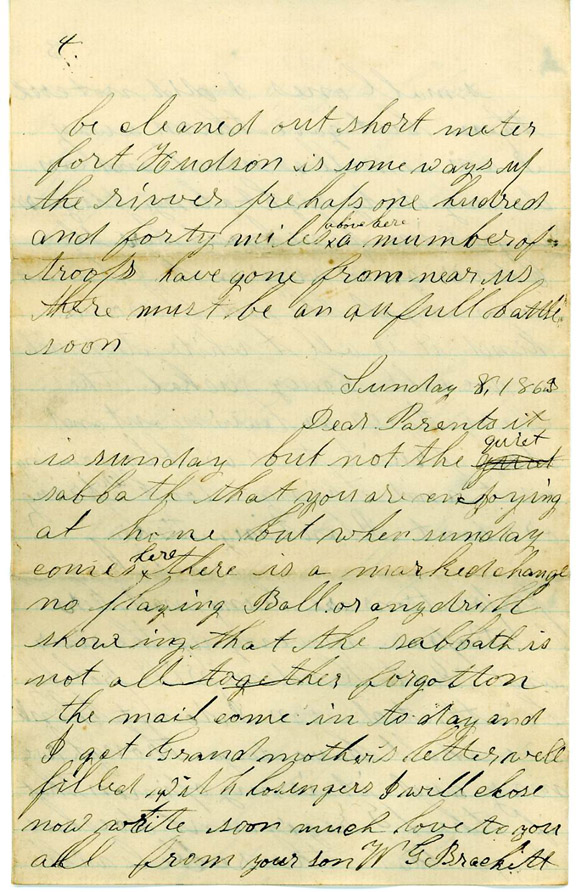 4.
be cleaned out short meter
fort Hudson is some ways up
the rivver prehaps one hudred
and forty miles above here a mumber of
troops have gone from near us
there must be an aufull battle
soon
Sunday 8, 1863
Dear Parents it
is sunday but not the quiet
sabbath that you are enjoying
at home but when sunday
comes here there is a marked change
no playing Ball or any drill
showing that the sabbath is
not all together forgotton
the mail come in to day and
I got Grandmother's letter, well
filled with losengers I will close
now write soon much love to you
all from your son W G Brackett